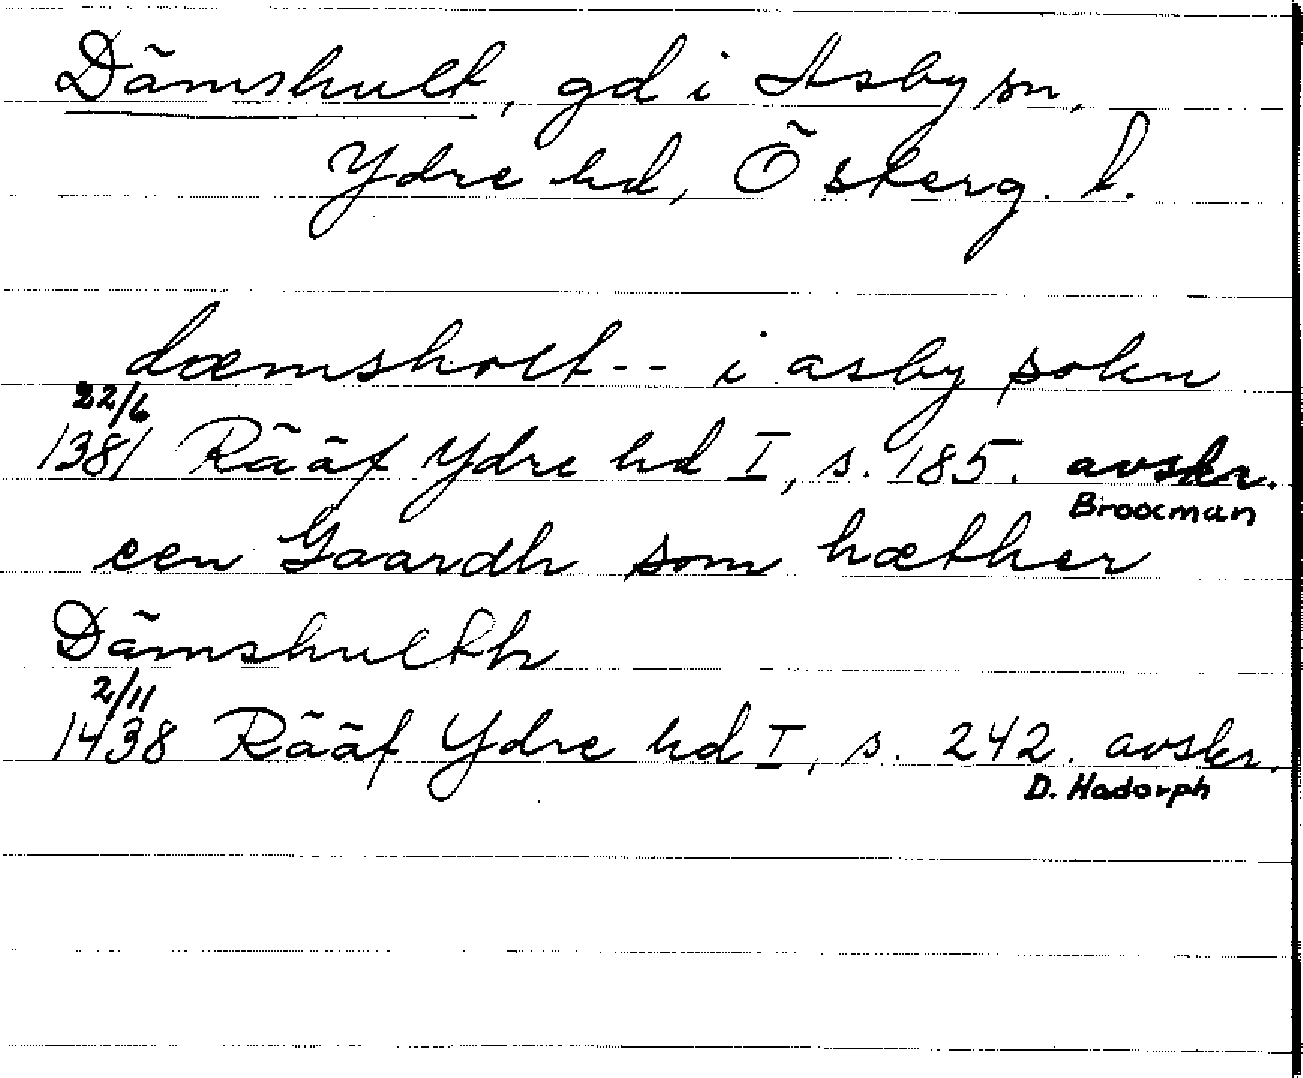 Dämshult, gd i Asby sn,
Ydre hd, Österg. l.
dæmsholt-- i asby sokn
22/6
1381 Rääf Ydre hd I, s. 185. avskr.
Broocman
een Gaardh som hæther
Dämshullth
2/11
1438 Rääf Ydre hd I, s. 242. avskr.
D. Hadorph